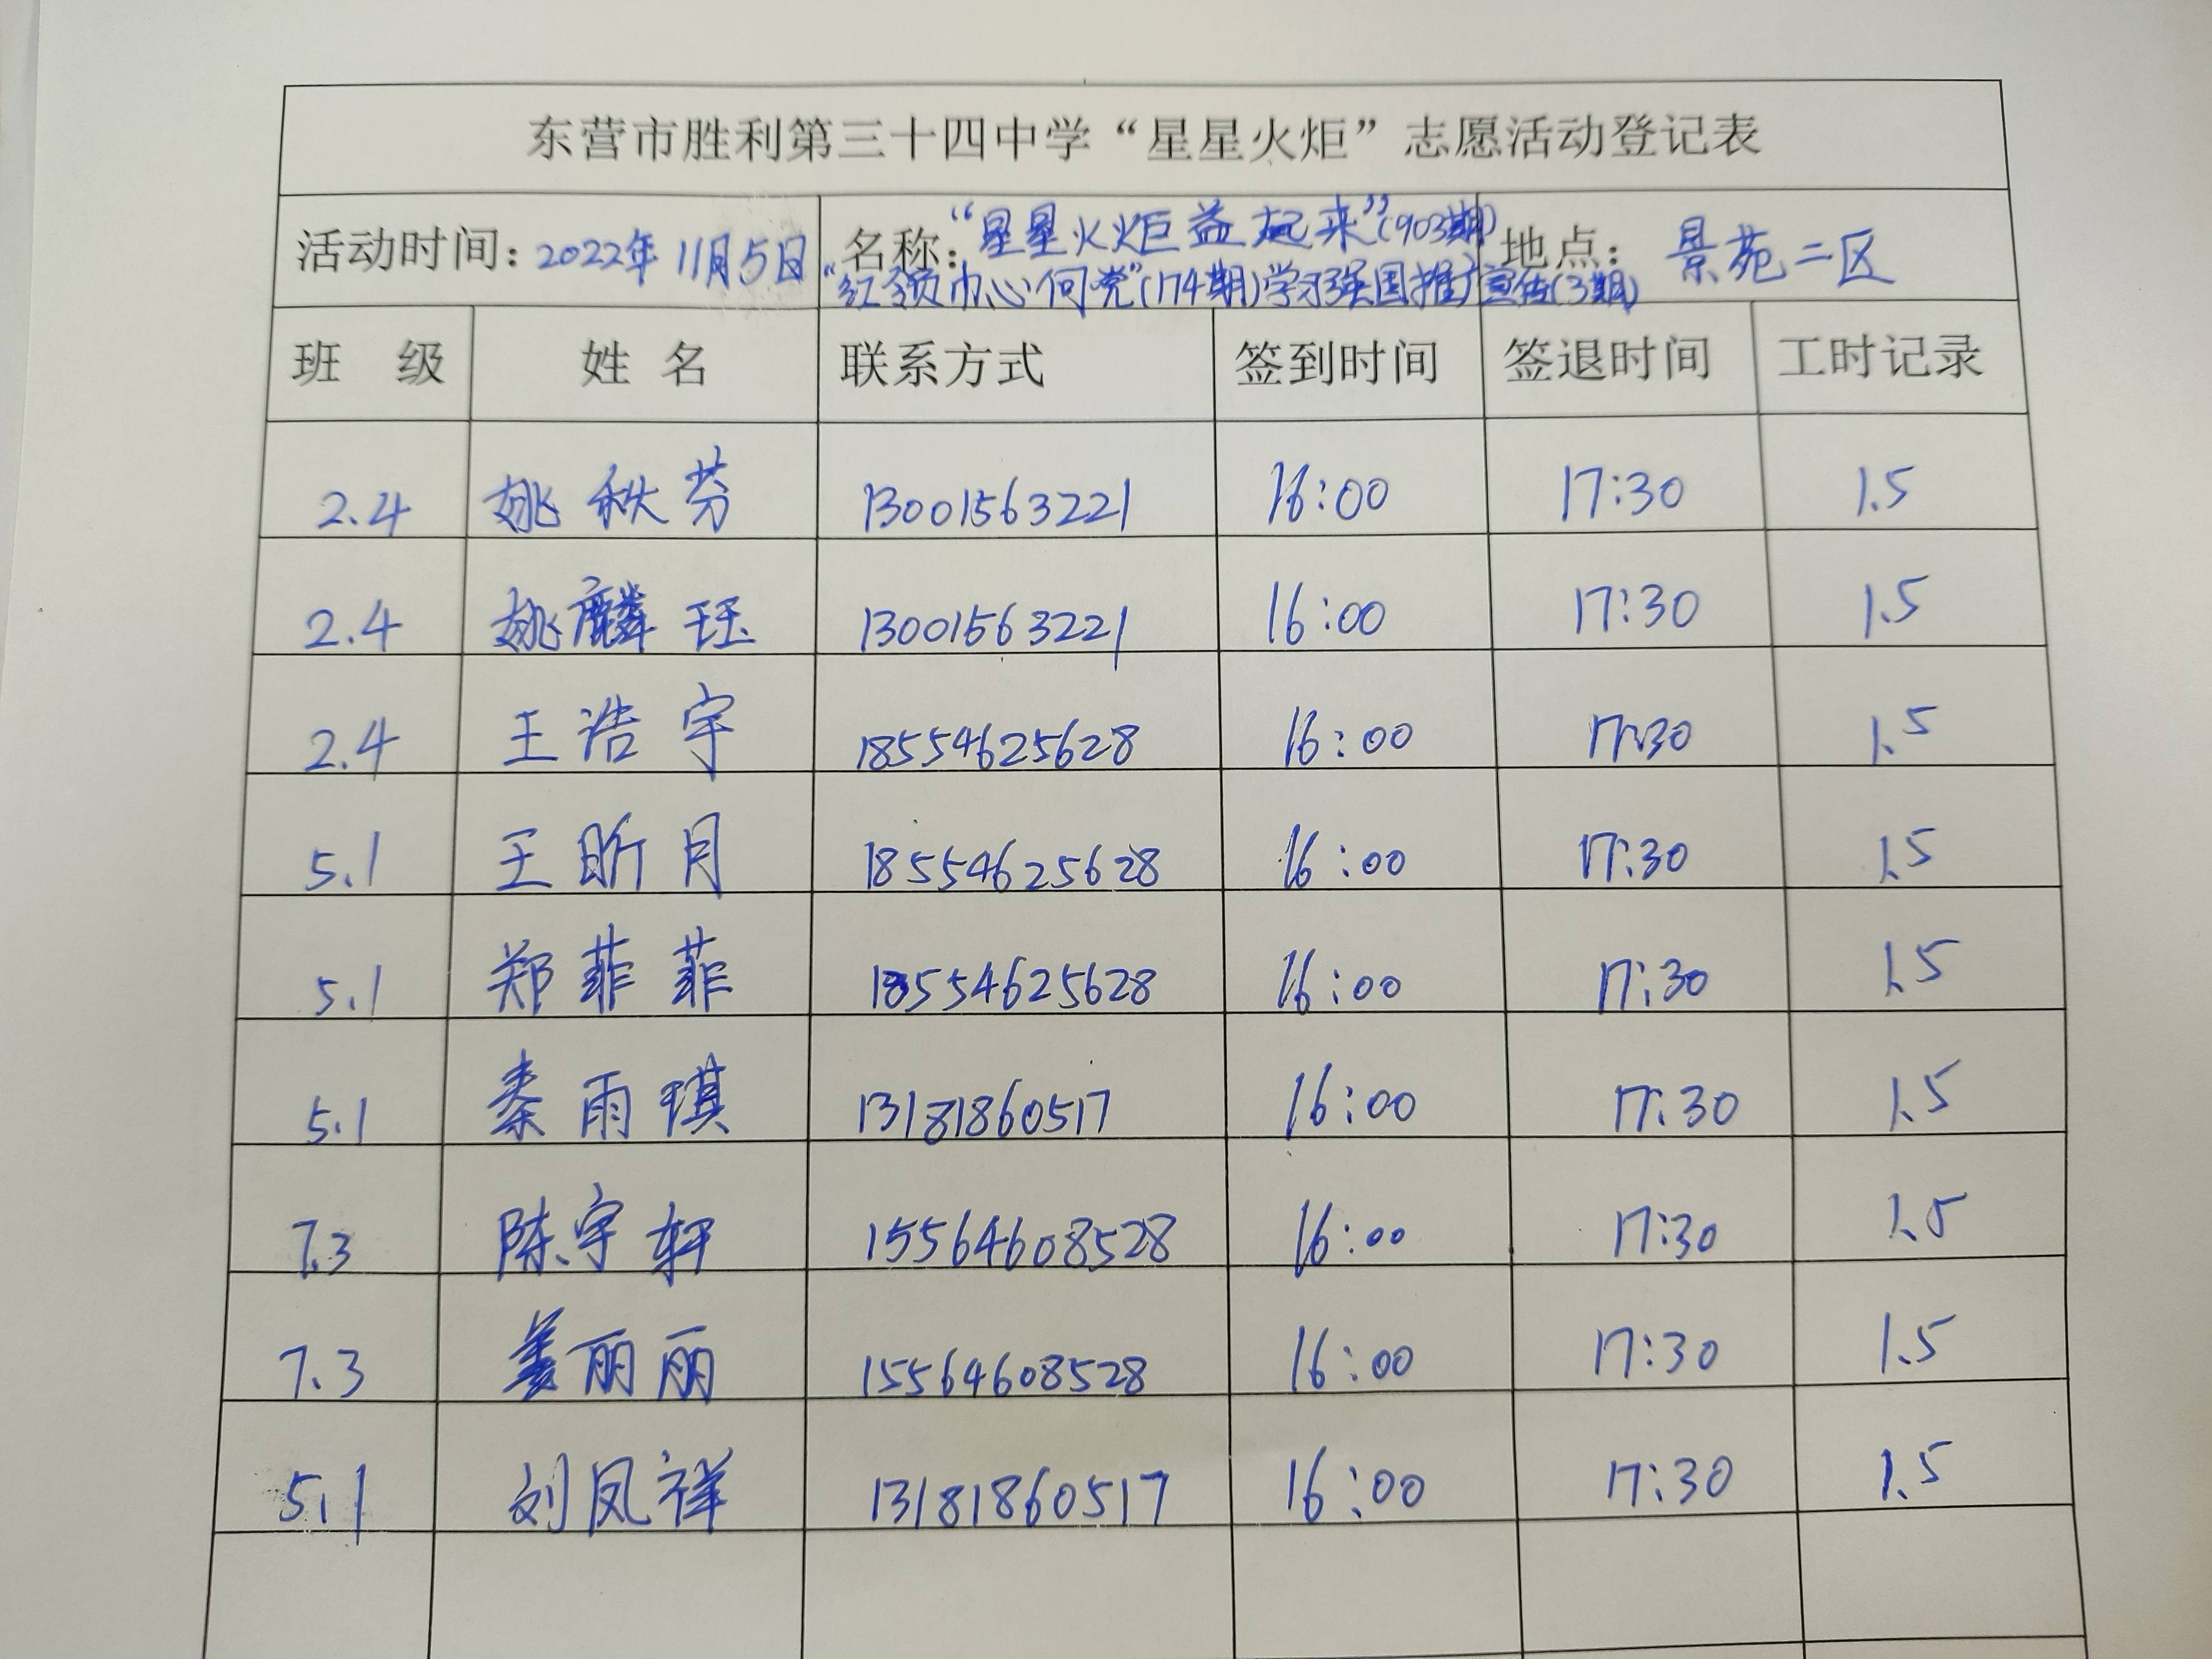 东营市胜利第三十四中学“星星火炬”志愿活动登记表
活动时间：2022年11月5日 名称：“星星火炬益起来”(903期) “红领巾心向党”(174期)学习强国推广宣传(3期) 地点：景苑二区
班 级 姓 名 联系方式 签到时间 签退时间 工时记录
2.4 姚秋芬 13001563221 16:00 17:30 1.5
2.4 姚麟珏 13001563221 16:00 17:30 1.5
2.4 王浩宇 18554625628 16:00 17:30 1.5
5.1 王昕月 18554625628 16:00 17:30 1.5
5.1 郑菲菲 18554625628 16:00 17:30 1.5
5.1 秦雨琪 13181860517 16:00 17:30 1.5
7.3 陈宇轩 15564608528 16:00 17:30 1.5
7.3 姜丽丽 15564608528 16:00 17:30 1.5
5.1 刘凤祥 13181860517 16:00 17:30 1.5